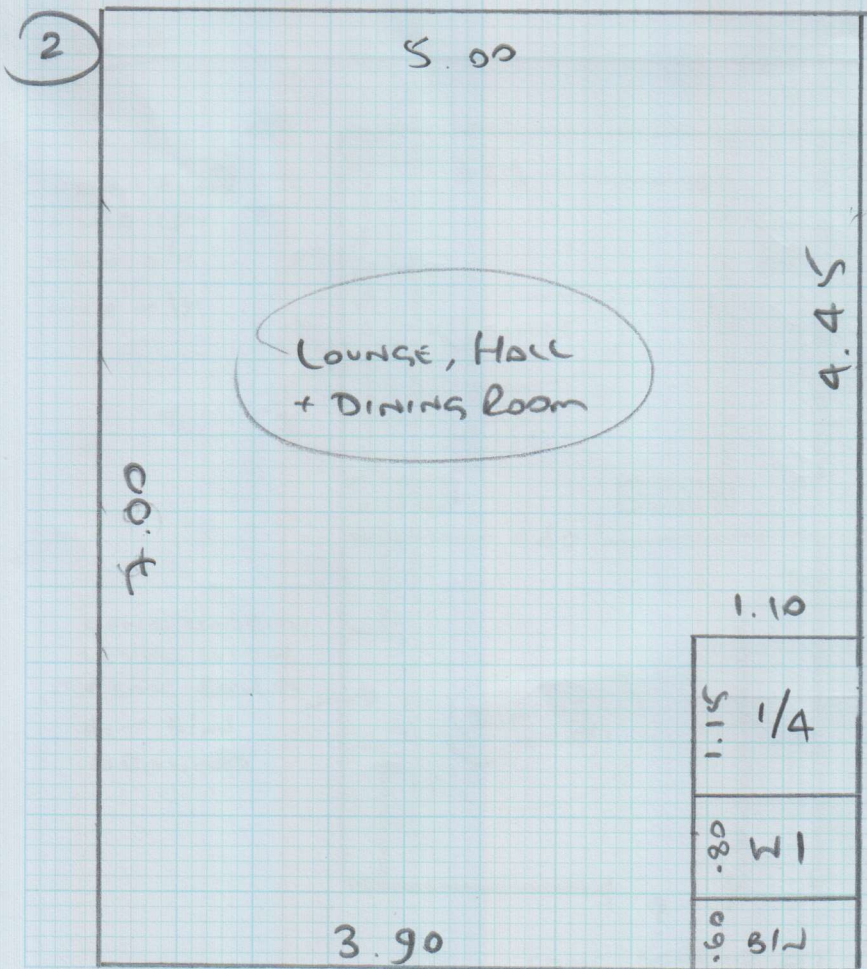 2
5.00
4.45
LOUNGE, HALL
+ DINING ROOM
7.00
1.10
1.15 1/4
.80 W1
.60 B/N
3.90